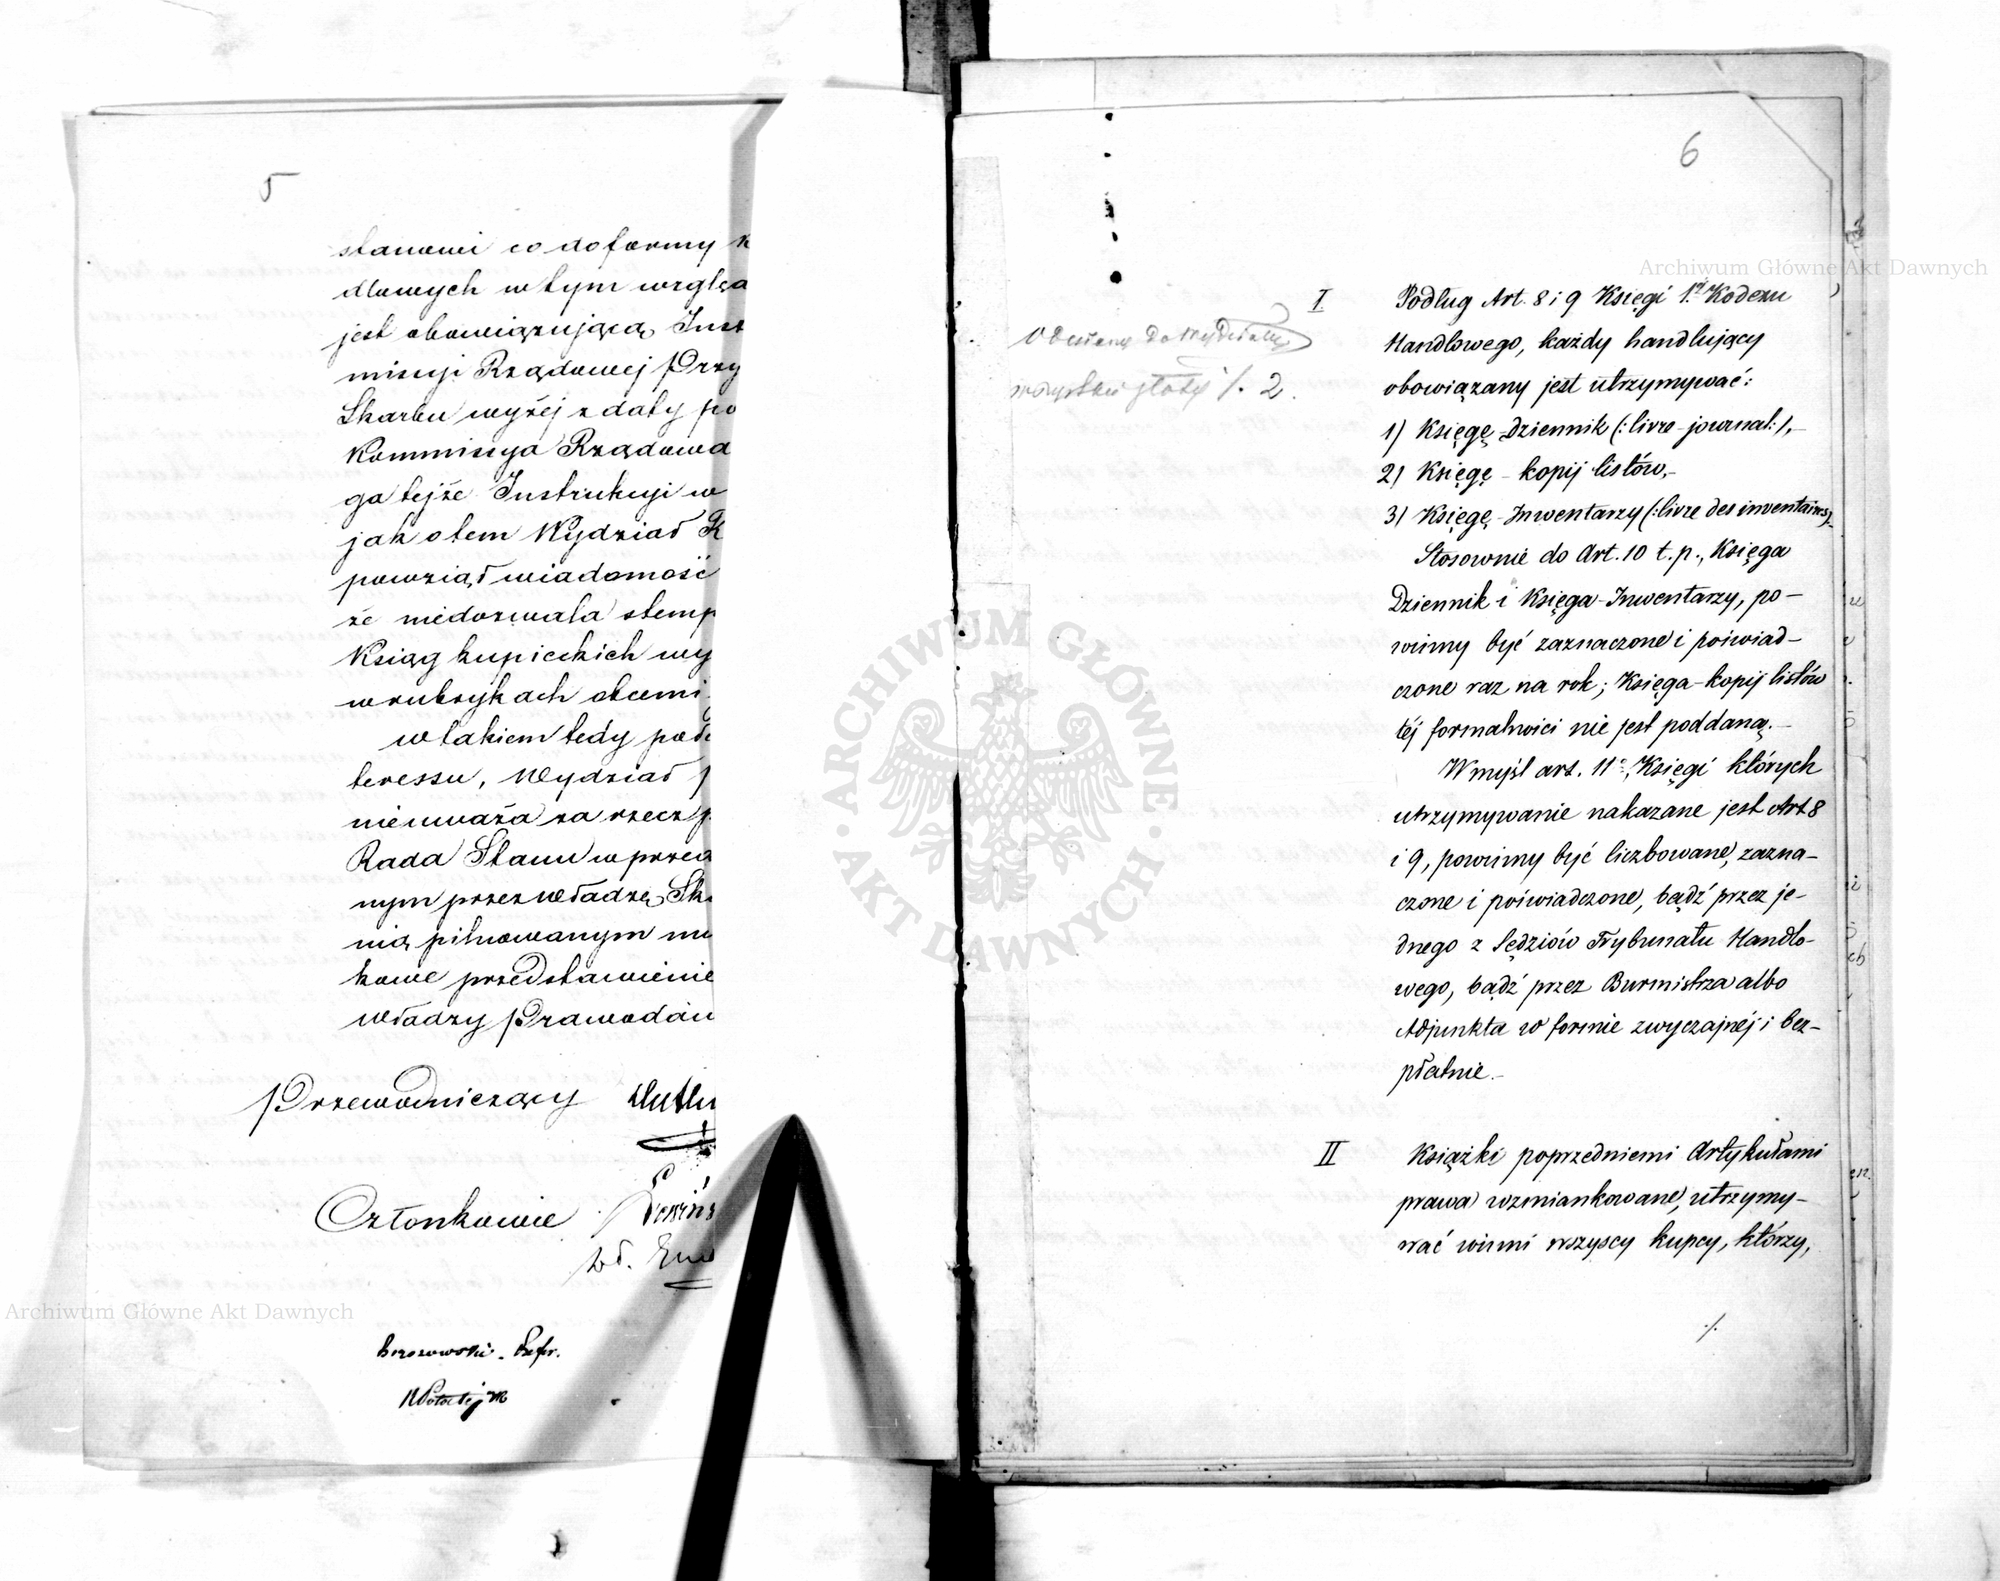 5
stanowi co do formy k
dlowych w tym wzglę
jest obowiązującą Inst
missyi Rządowej Przy
Skarbu wyżej z daty po
Kommissya Rządowa
ga tejże Instrukcyi w
jak o tem Wydział K
powziął wiadomość
że niedozwala stemp
Ksiąg kupieckich wy
w rubrykach obcemi
w takiem tedy poło
teressu, Wydział p
nieuważa za rzecz p
Rada Stanu w przed
nym przez władzę Ska
nią pilnowanym
kowe przedstawienie
władzy Prawodaw
Przewodniczący
Członkowie
6
2.
I Podług Art. 8 i 9 Księgi 1éj Kodexu
Handlowego, każdy handlujący
obowiązany jest utrzymywać:
1) Księgę-Dziennik (:livre-journal:),-
2) Księgę - kopij listów,-
3) Księgę-Inwentarzy (:livre des inventaires:).
Stosownie do Art. 10 t.p., Księga
Dziennik i Księga-Inwentarzy, po-
winny być zaznaczone i poświad-
czone raz na rok; Księga-kopij listów
téj formalności nie jest poddaną.-
W myśl art. 11°, Księgi których
utrzymywanie nakazane jest Art 8
i 9, powinny być liczbowane, zazna-
czone i poświadczone, bądź przez je-
dnego z Sędziów Trybunału Handlo-
wego, bądź przez Burmistrza albo
Adjunkta w formie zwyczajnéj i bez-
płatnie.-
II Książki poprzedniemi Artykułami
prawa wzmiankowane, utrzymy-
wać winni wszyscy kupcy, którzy,
./.
Archiwum Główne Akt Dawnych
Archiwum Główne Akt Dawnych
ARCHIWUM GŁÓWNE · AKT DAWNYCH ·